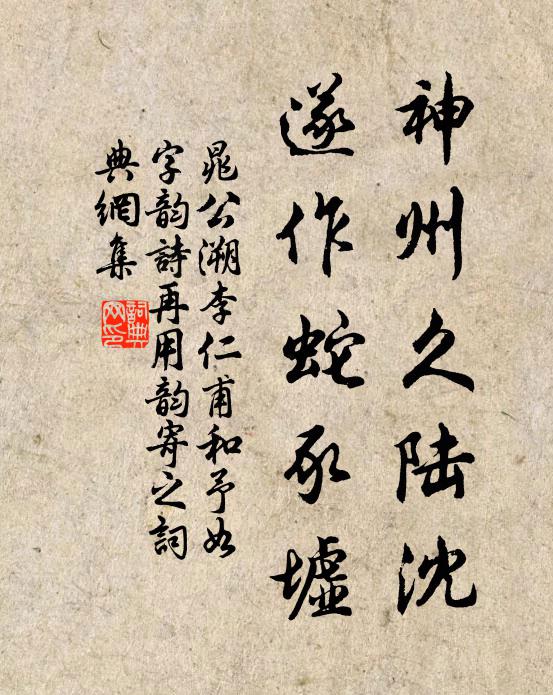 神州久陆沈
遂作蛇豕墟
晁公溯李仁甫和予如
字韵詩再用韵寄之詞
典網集
詞典
网印